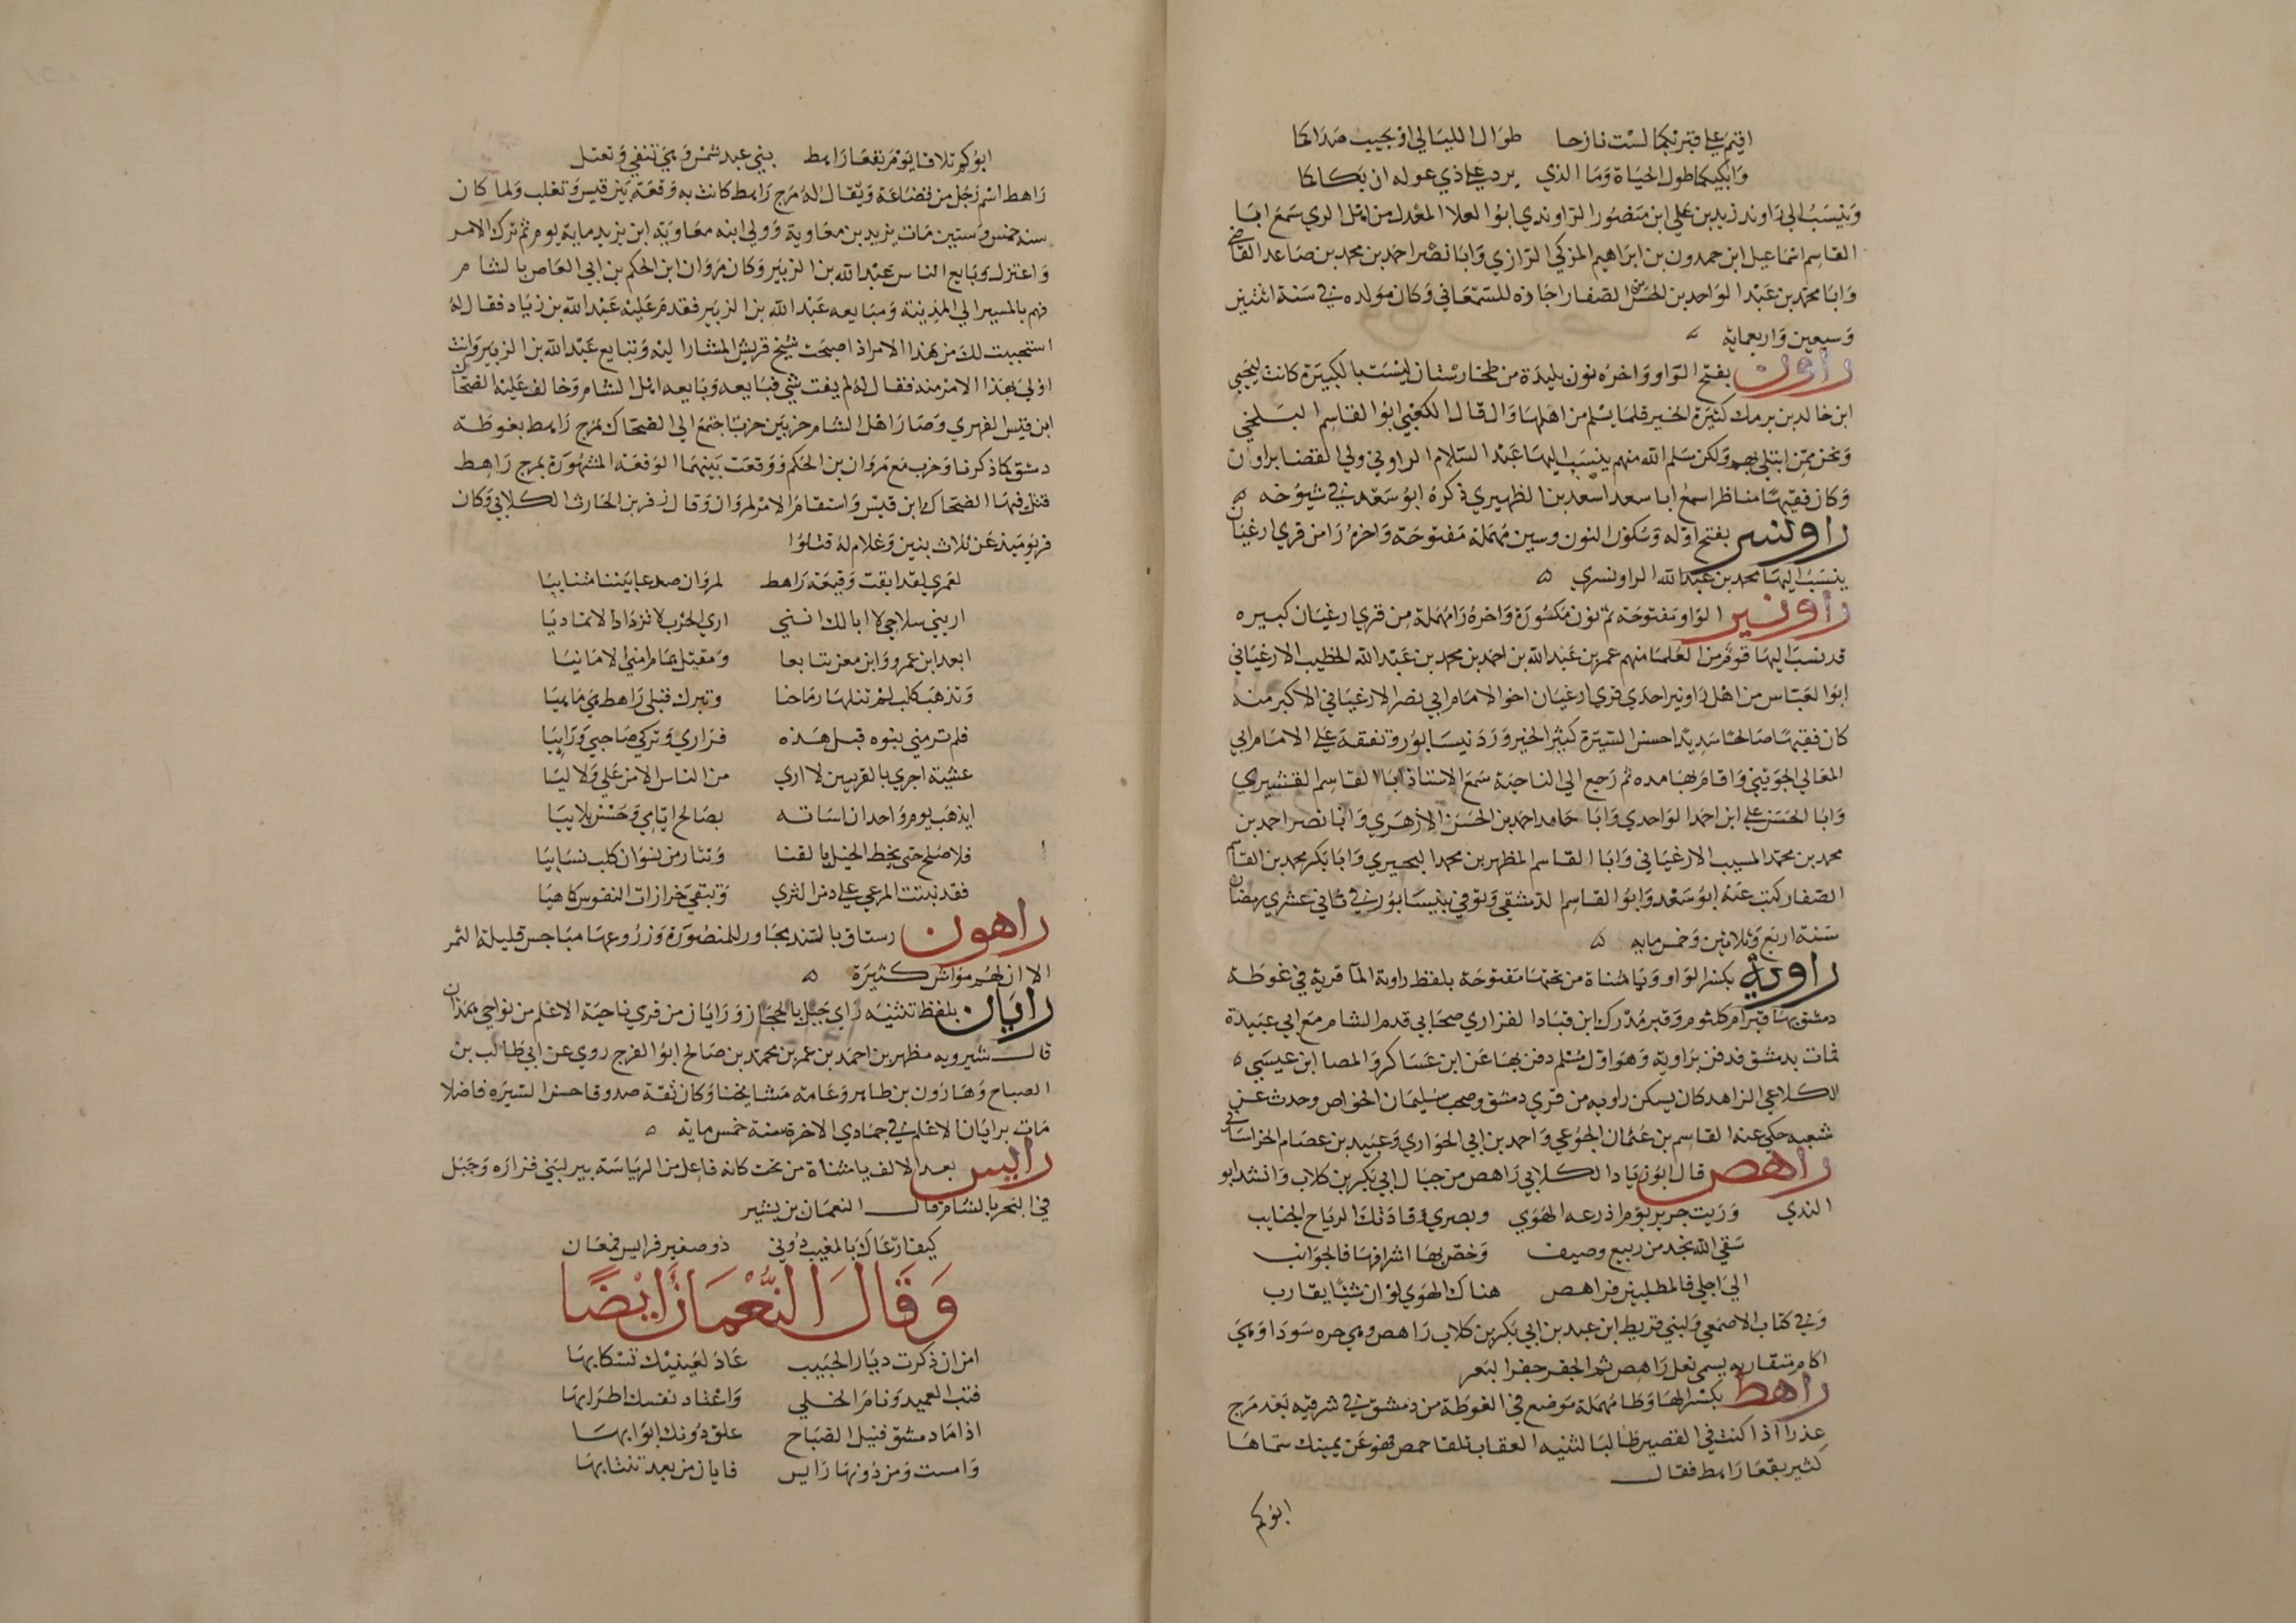 اقيم على قبريكما لست نازحا طوال الليالي او يجيب صداكما
وابكيكما طول الحياة وما الذي يرد على ذي عوله ان بكاكما
وينسب الى راوند زيد بن علي ابن منصور الراوندي ابو العلا المعدل من اهل الري سمع ابا
القاسم اسماعيل ابن حمدون بن ابراهيم المزكي الرازي وابا نصر احمد بن محمد بن صاعد القاضي
وابا محمد بن عبد الواحد بن الحسن الصفار اجازه للسمعاني وكان مولده في سنة اثنين
وسبعين واربعماية
راون بفتح الواو واخره نون بليدة من طخارستان ليست بالكبيرة كانت ليحيى
ابن خالد بن برمك كثيرة الخير قلما يسلم من اهلها وال قال الكعبي ابو القاسم البلخي
ونحن ممن ابتلي بهم ولكن سلم الله منهم ينسب اليها عبد السلام الراوني ولي القضا براون
وكان فقيها مناظرا سمع ابا سعد اسعد بن الظهيري ذكره ابو سعد في شيوخه
راونسر بفتح اوله وسكون النون وسين مهملة مفتوحة واخره را من قري ارغيان
ينسب اليها محمد بن عبد الله الراونسري
راونير الواو مفتوحة ثم نون مكسورة واخره را مهملة من قري ارغيان كبيره
قد نسب اليها قوم من العلما منهم عمر بن عبد الله بن احمد بن محمد بن عبد الله الخطيب الارغياني
ابو العباس من اهل راونير احدي قري ارغيان اخو الامام ابي نصر الارغياني الاكبر منه
كان فقيها صالحا سديدا حسن السيرة كثير الخير ورد نيسابور وتفقه على الامام ابي
المعالي الجويني واقام بها مده ثم رجع الى الناحية سمع الاستاذ ابا القاسم القشيري
وابا الحسن علي ابن احمد الواحدي وابا حامد احمد بن الحسن الازهري وابا نصر احمد بن
محمد بن محمد المسيب الارغياني وابا القاسم المظهر بن محمد البحيري وابا بكر محمد بن القاسم
الصفار كتب عنه ابو سعد وابو القاسم الدمشقي وتوفي بنيسابور في ثاني عشري رمضان
سنة اربع وثلاثين وخمس مايه
راوية بكسر الواو ويا مثناة من تحتها مفتوحة بلفظ راوية الما قرية في غوطة
دمشق بها قبر ام كلثوم وقبر مدرك ابن قبادا الفزاري صحابي قدم الشام مع ابي عبيدة
فمات بدمشق فدفن براوية وهو اول مسلم دفن بها عن ابن عساكر والمصا ابن عيسى
الكلاعي الزاهد كان يسكن راويه من قري دمشق وصحب سليمان الخواص وحدث عن
شعبه حكى عنه القاسم بن عثمان الجوعي واحمد بن ابي الحواري وعبيد بن عصام الخراساني
راهص قال ابو زياد الكلابي راهص من جبال ابي بكر بن كلاب وانشد ابو
الندي وريت جرير يوم اذرعه الهوي وبصري وقادتك الرياح الجنايب
سقي الله نجد من ربيع وصيف وخص بها اشرافها فالجوانب
الى اجلي فالمطلبين فراهص هناك الهوي لو ان شيا يقارب
وفي كتاب الاصمعي ولبني قريط ابن عبد بن ابي بكر بن كلاب راهص وهي حره سودا وهي
اكام متقاربه يسمى نعل راهص ثم الجفر جفر البعر
راهط بكسر الها وطا مهملة موضع في الغوطة من دمشق في شرقيه بعد مرج
عذرا اذا كنت في القصير طالبا لثنيه العقاب تلقا حمص فهو عن يمينك سماها
كثير بقعا راهط فقال
ابوكم
ابوكم تلاقا يوم بقعا راهط بني عبد شمس وهي تنفي وتعتل
راهط اسم رجل من قضاعة ويقال له مرج راهط كانت به وقعة بين قيس وتغلب ولما كان
سنه خمس وستين مات يزيد بن معاوية وولي ابنه معاوية ابن يزيد ماية يوم ثم ترك الامر
واعتزل وبايع الناس عبد الله بن الزبير وكان مروان ابن الحكم بن ابي العاص بالشام
فهم بالمسير الى المدينة ومبايعه عبد الله بن الزبير فقدم عليه عبد الله بن زياد فقال له
استحييت لك من هذا الامر اذ اصبحت شيخ قريش المشار اليه وتبايع عبد الله بن الزبير وانت
اولى بهذا الامر منه فقال له لم يفت شي فبايعه وبايعه اهل الشام وخالف عليه الضحاك
ابن قيس الفهري وصار اهل الشام حزبين حزبا اجتمع الى الضحاك بمرج راهط بغوطة
دمشق كما ذكرنا وحزب مع مروان بن الحكم ووقعت بينهما الوقعة المشهورة بمرج راهط
قتل فيها الضحاك ابن قيس واستقام الامر لمروان وقال زفر بن الحارث الكلابي وكان
فر يوميذ عن ثلاث بنين وغلام له قتلوا
لعمري لقد ابقت وقيعة راهط لمروان صدعا بيننا متناييا
اريني سلاحي لا ابا لك انني اري الحرب لا تزداد الا تماديا
ابعد ابن عمرو وابن معن تتابعا ومقتل همام امني الامانيا
وتذهب كلب لم تنلها رماحنا وتترك قتلى راهط هي ما هيا
فلم تر مني نبوه قبل هذه فراري وتركي صاحبي ورايا
عشية اجري بالقرين لا اري من الناس الا من علي ولا ليا
ايذهب يوم واحد ان اساته بصالح ايامي وحسن بلاييا
فلا صلح حتى يخط الخيل بالقنا وتثار من نسوان كلب نسايا
فقد نبتت المرعي على دمن الثري وتبقى حزازات النفوس كما هيا
راهون رستاق بالسند يجاور للمنصورة وزروعها مباخس قليلة الثمر
الا ان لهم مواش كثيرة
رايان بلفظ تثنيه راي جبل بالحجاز ورايان من قري ناحية الاعلم من نواحي همذان
قال شيرويه مظهر بن احمد بن عمر بن محمد بن صالح ابو الفرج روي عن ابي طالب بن
الصباح وهارون بن طاهر وعامة مشايخنا وكان ثقة صدوقا حسن السيره فاضلا
مات برايان الاعلم في جمادي الاخرة سنة خمس ماية
رايس بعد الالف يا مثناة من تحت كانه فاعل من الرياسة بير لبني فزاره وجبل
في البحر بالشام قال النعمان بن بشير
كيف ارعاك بالمغيب ودوني ذو صغير فرايس فمعان
وقال النعمان ايضا
امن ان ذكرت ديار الحبيب عاد لعينيك تسكابها
فبت العميد ونام الخلي واعتاد نفسك اطرابها
اذا ما دمشق قبيل الصباح علق دونك ابوابها
وامست ومن دونها رايس فايان من بعد تنتابها